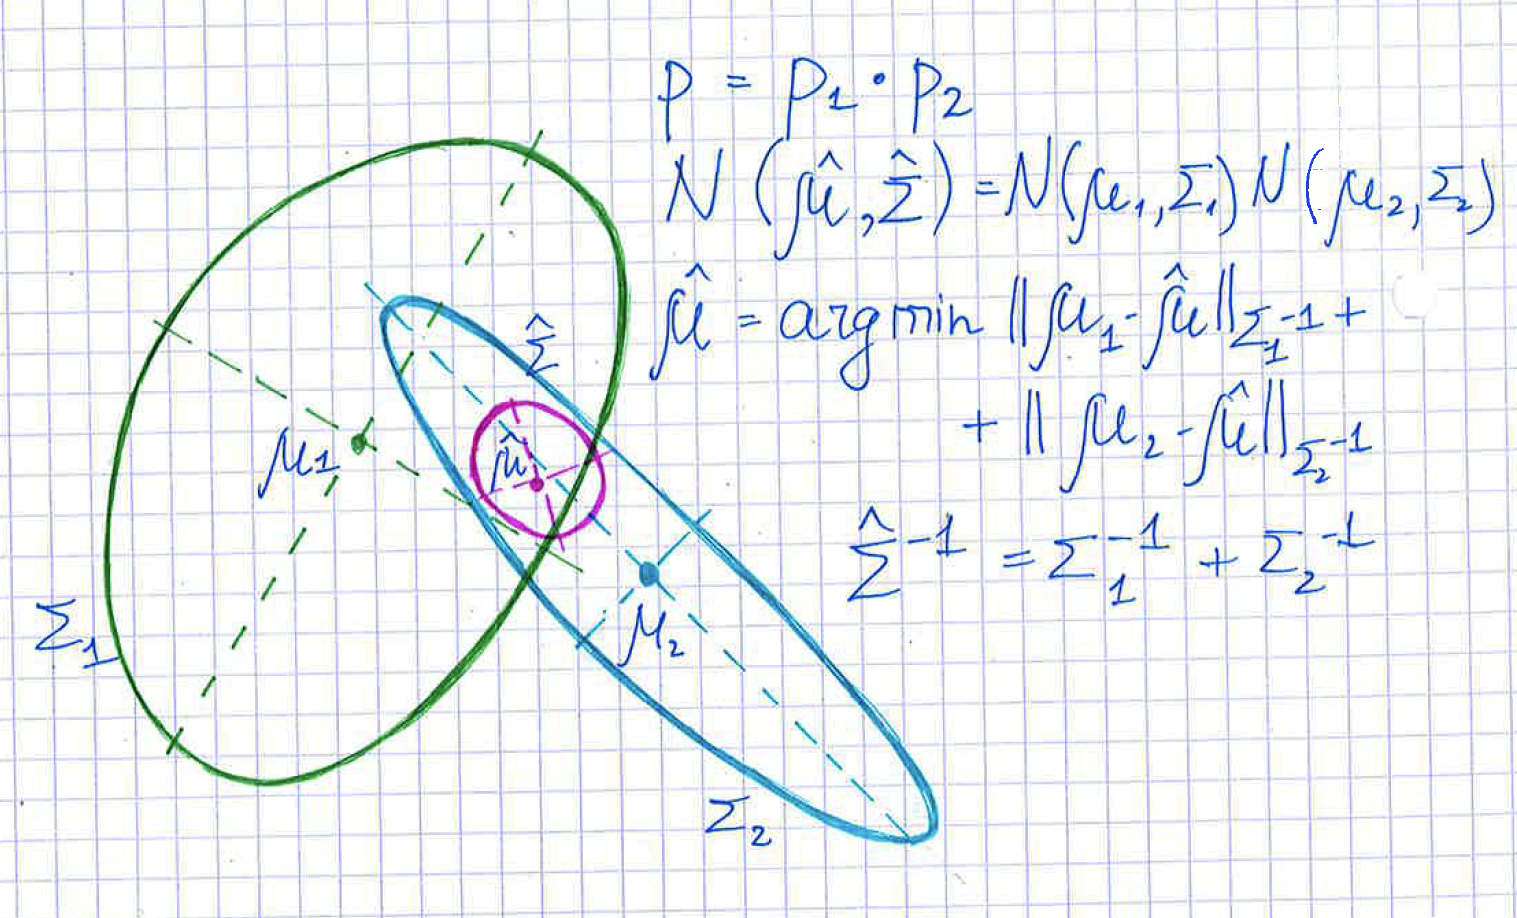 p = p₁ · p₂
N (μ̂, Σ̂) = N(μ₁, Σ₁) N (μ₂, Σ₂)
μ̂ = argmin ‖μ₁ - μ̂‖Σ₁⁻¹ +
+ ‖ μ₂ - μ̂‖Σ₂⁻¹
Σ̂⁻¹ = Σ₁⁻¹ + Σ₂⁻¹
Σ̂
μ̂
μ₁
μ₂
Σ₁
Σ₂